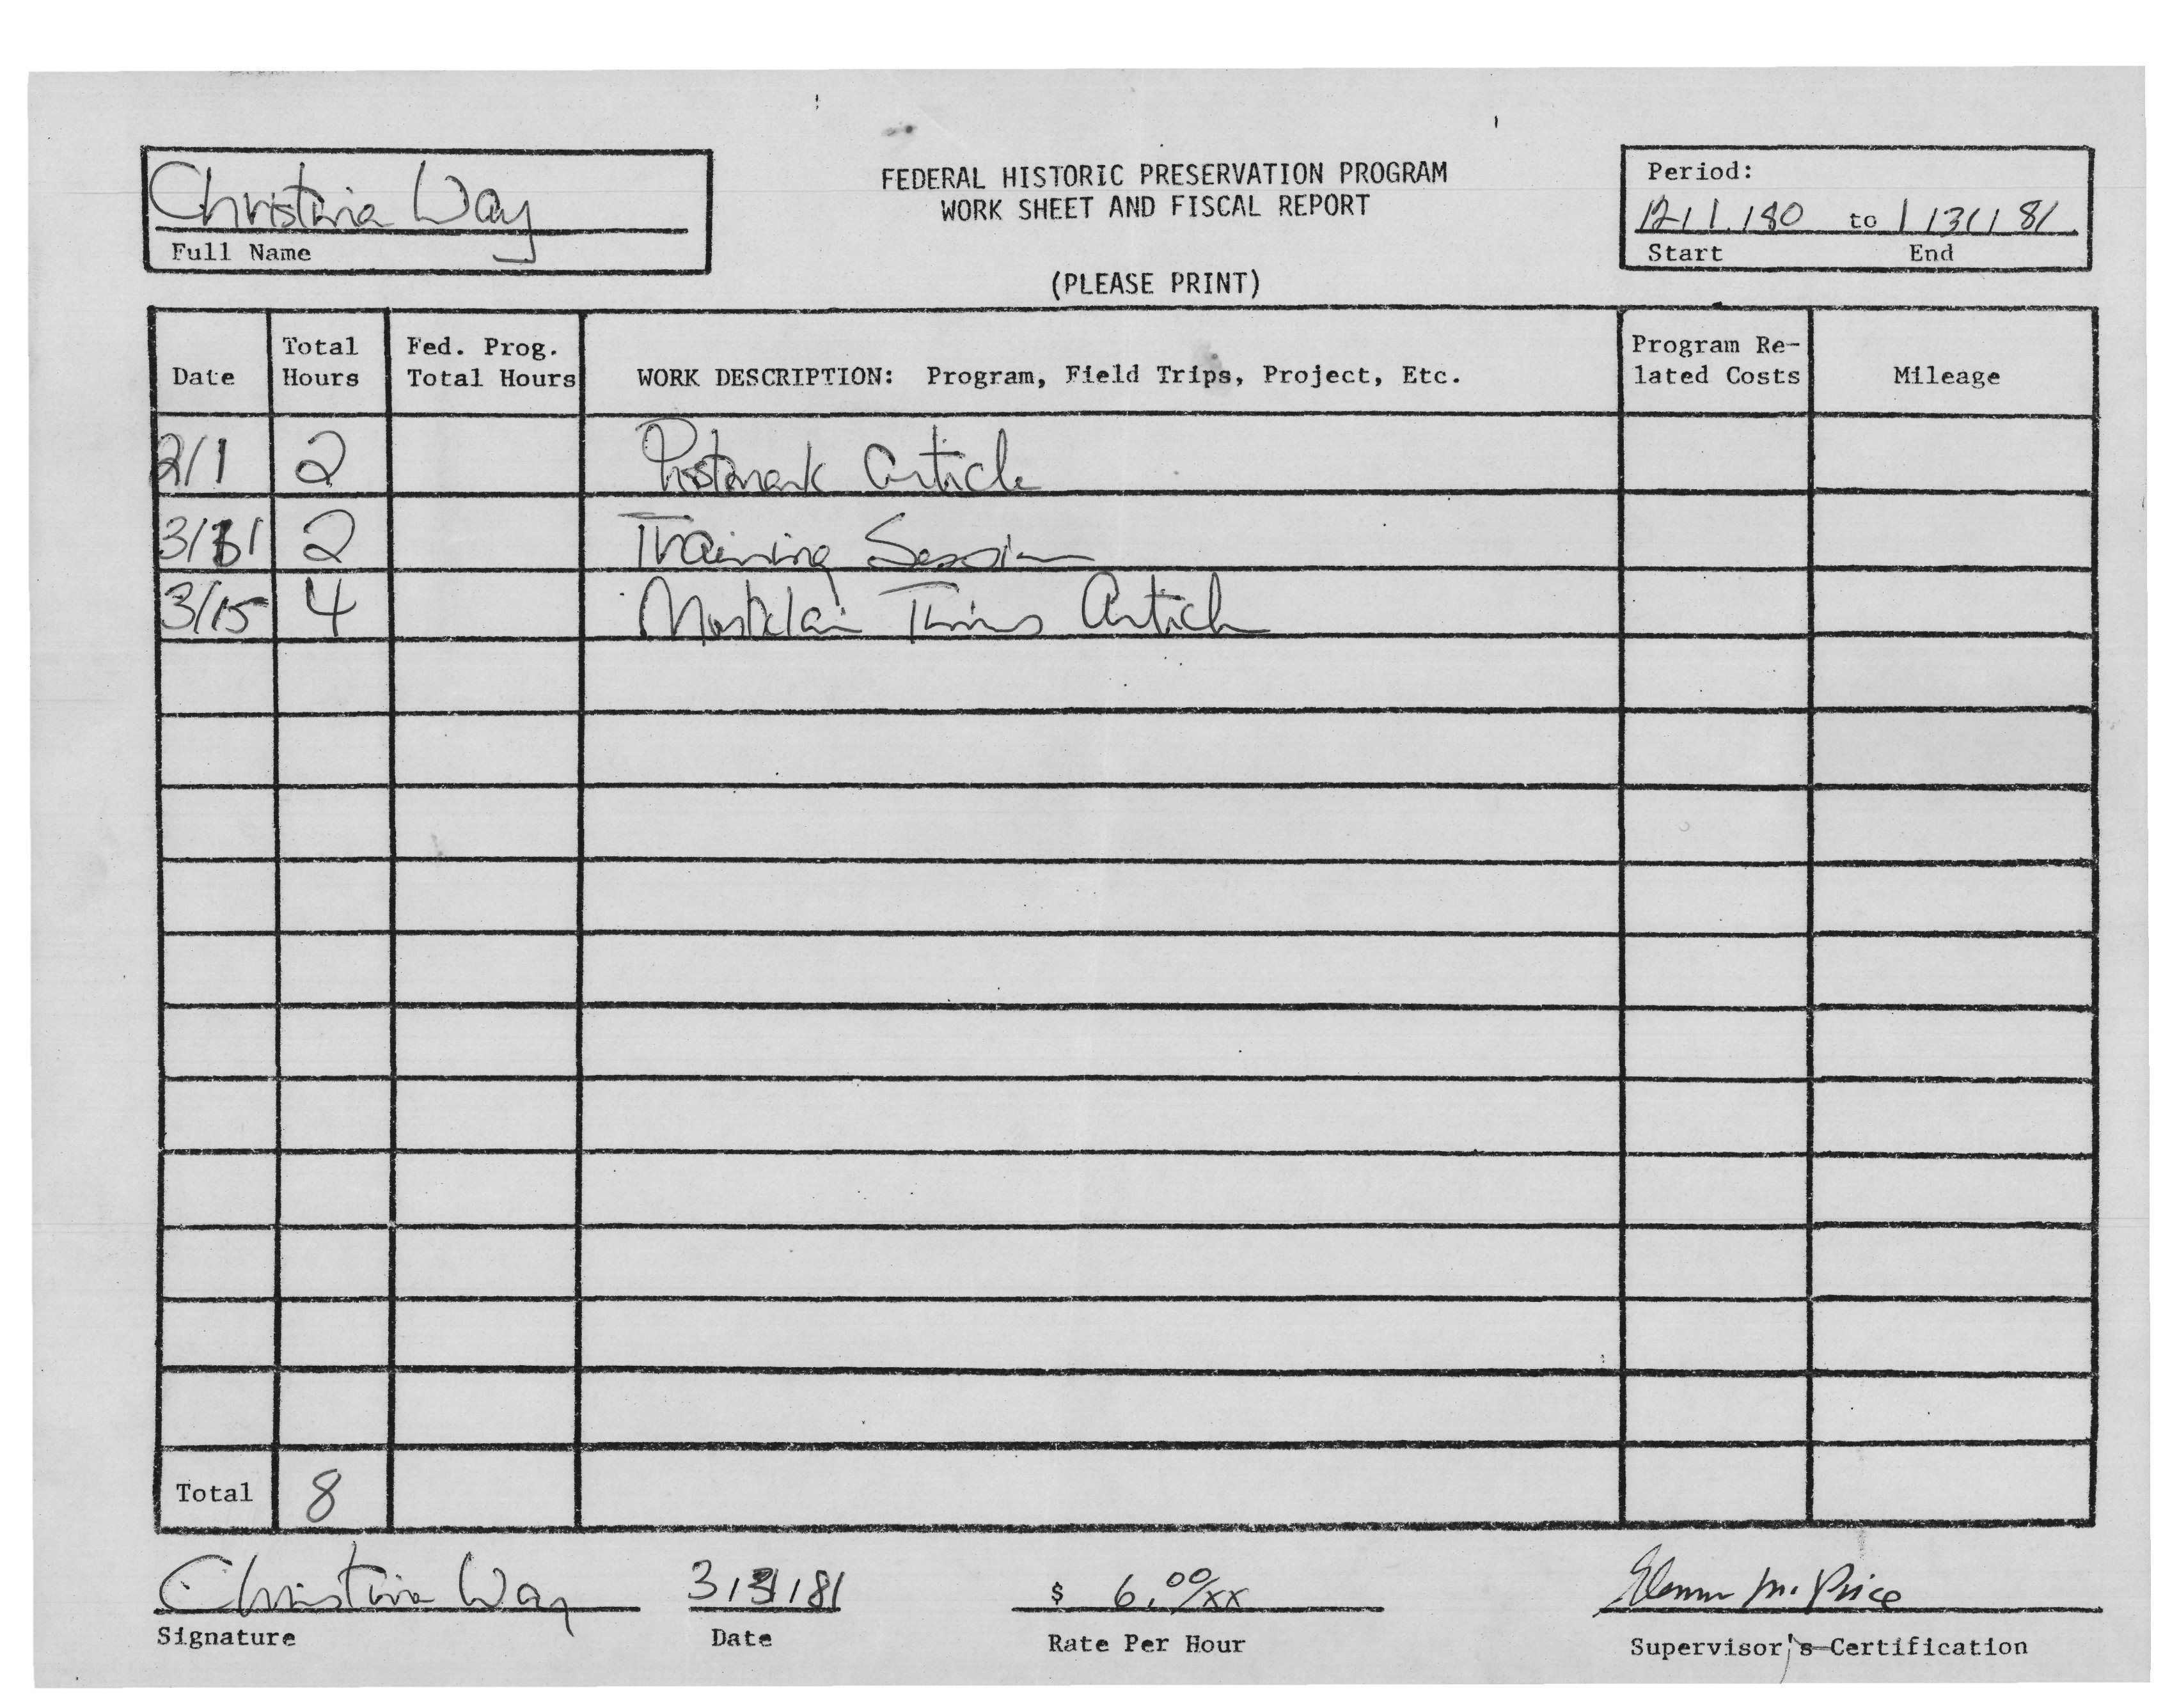 Christina Way
Full Name
FEDERAL HISTORIC PRESERVATION PROGRAM
WORK SHEET AND FISCAL REPORT
(PLEASE PRINT)
Period:
12/1/80 to 1/31/81
Start End
Date Total Hours Fed. Prog. Total Hours WORK DESCRIPTION: Program, Field Trips, Project, Etc. Program Re-lated Costs Mileage
2/1 2 Postmark Article
3/31 2 Training Session
3/15 4 Montclair Times Article
Total 8
Christina Way 3/31/81 $ 6.00/xx M. Price
Signature Date Rate Per Hour Supervisor's Certification